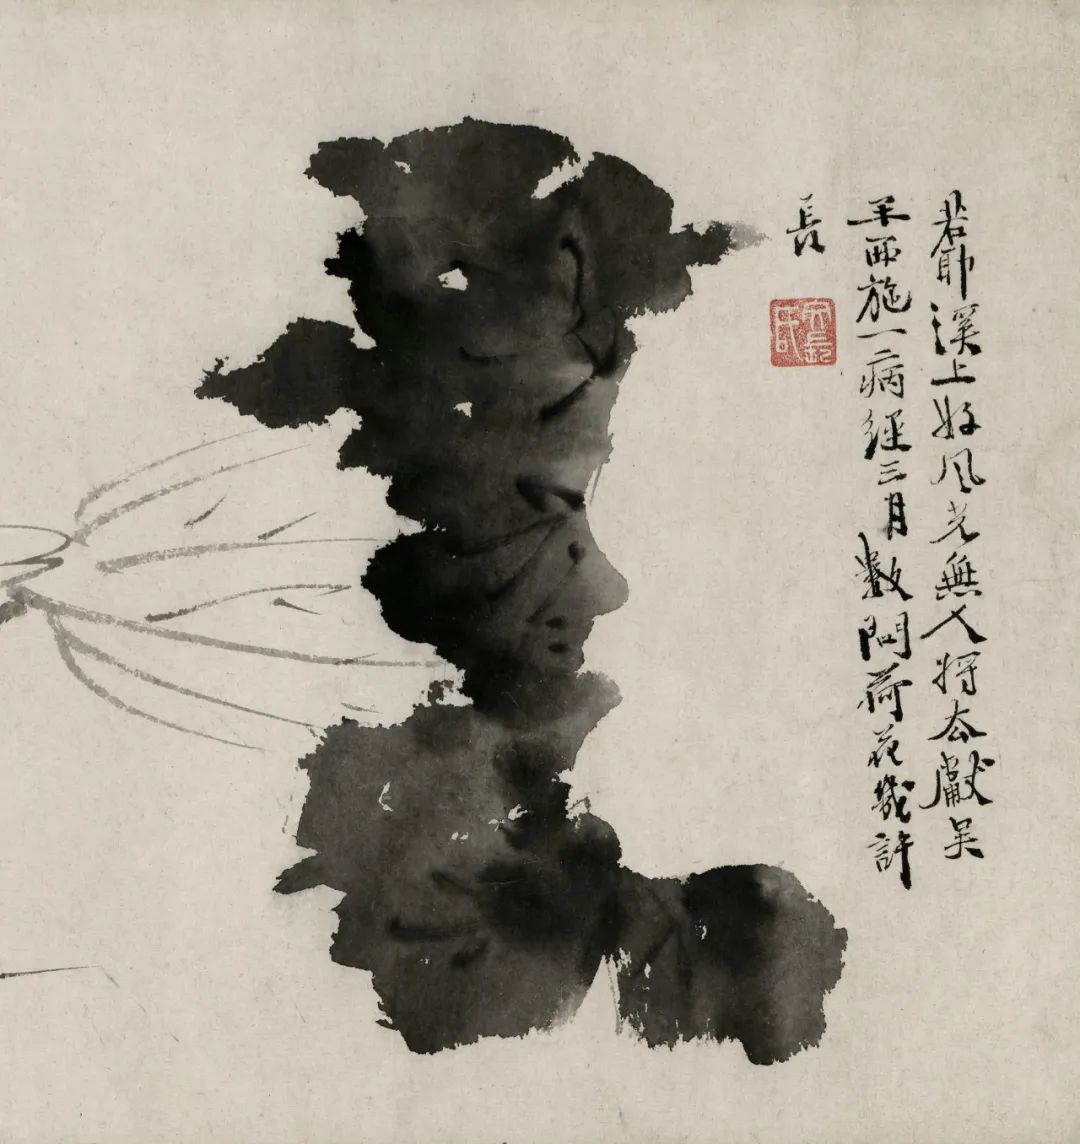 若耶溪上好風光無人將去獻吳
王西施一病經三月數問荷花幾許
長